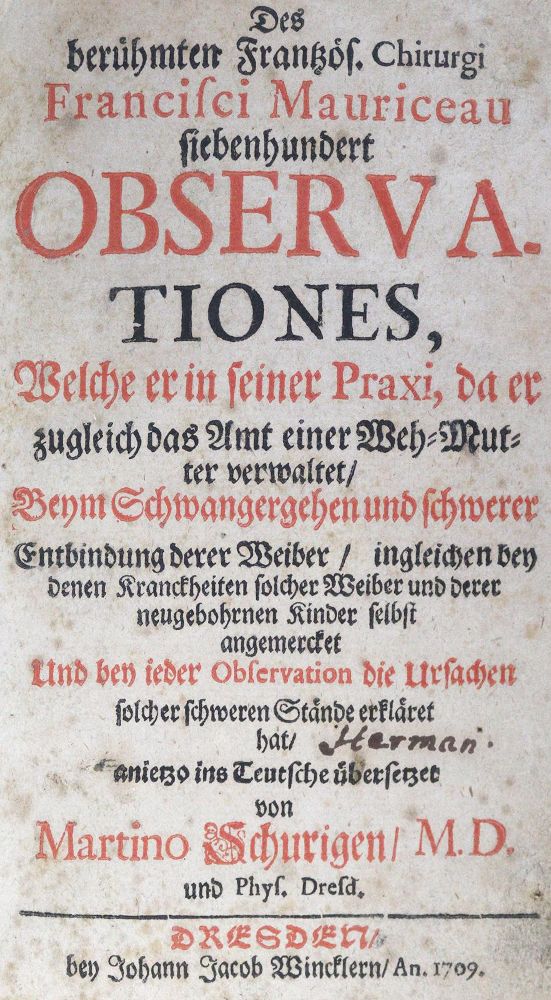 Des
berühmten Frantzöſ. Chirurgi
Franciſci Mauriceau
ſiebenhundert
OBSERVA-
TIONES,
Welche er in ſeiner Praxi, da er
zugleich das Amt einer Weh-Mut-
ter verwaltet/
Beym Schwangergehen und ſchwerer
Entbindung derer Weiber / ingleichen bey
denen Kranckheiten ſolcher Weiber und derer
neugebohrnen Kinder ſelbſt
angemercket
Und bey ieder Obſervation die Urſachen
ſolcher ſchweren Stände erkläret
hat/ Herman.
anietzo ins Teutſche überſetzet
von
Martino Schurigen/ M.D.
und Phyſ. Dreſd.
DRESDEN/
bey Johann Jacob Wincklern/ An. 1709.